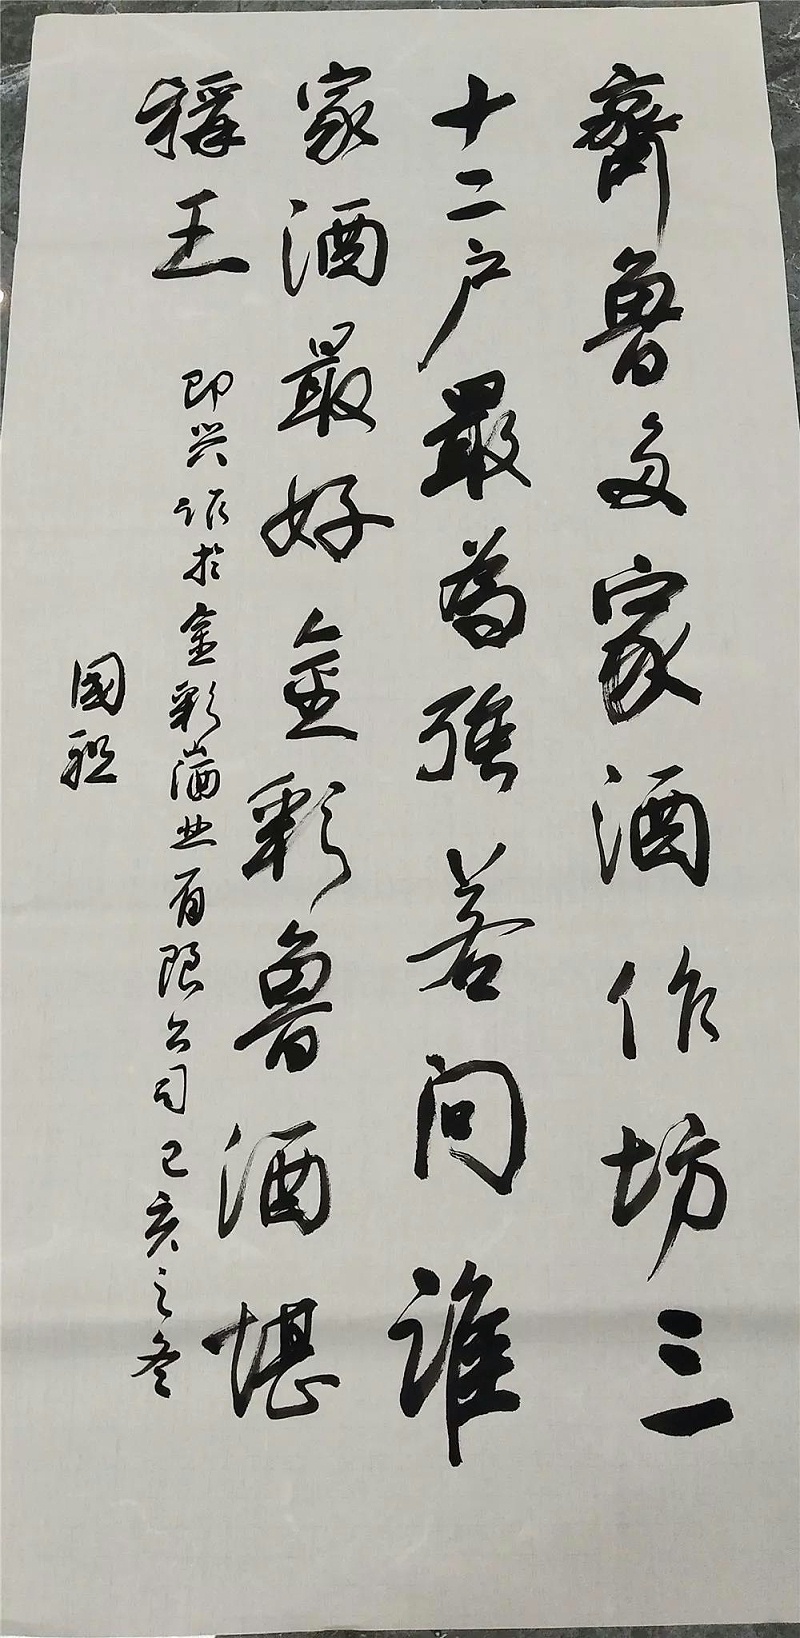 齊魯多家酒作坊三
十二户最為強若问誰
家酒最好金彩魯酒堪
稱王
即兴作於金彩酒业有限公司己亥之冬
國祖